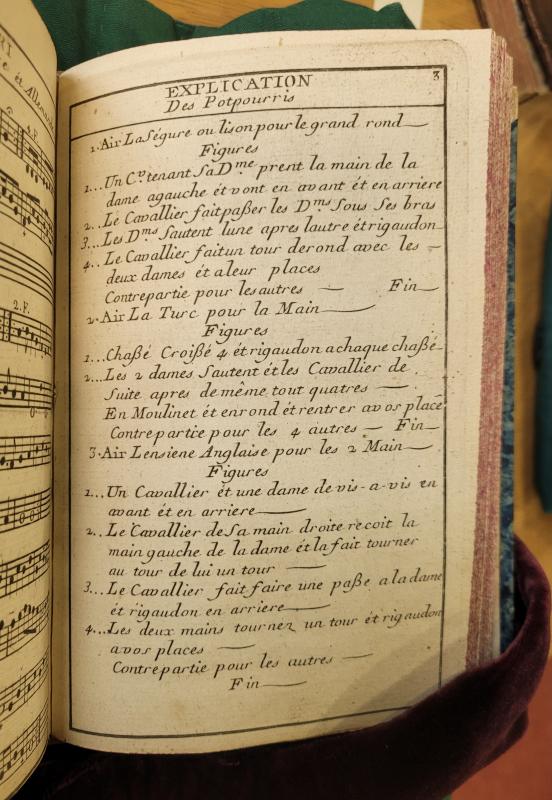 EXPLICATION
3
Des Potpourris
1. Air La Ségure ou lison pour le grand rond
Figures
1... Un Cv. tenant Sa Dme. prent la main de la
dame agauche ét vont en avant ét en arriere
2.. Le Cavallier fait paßer les Dms Sous Ses bras
3... Les Dms Sautent lune apres lautre ét rigaudon
4.. Le Cavallier fait un tour de rond avec les
deux dames ét a leur places
Contrepartie pour les autres Fin
2. Air La Turc pour la Main
Figures
1... Chaßé Croißé 4 ét rigaudon a chaque chaßé
2... Les 2 dames Sautent ét les Cavallier de
Suite apres de même tout quatres
En Moulinet ét en rond ét rentrer a vos place
Contre partie pour les 4 autres Fin
3. Air Lensiene Anglaise pour les 2 Main
Figures
1... Un Cavallier ét une dame de vis-a-vis en
avant ét en arriere
2.. Le Cavallier de Sa main droite recoit la
main gauche de la dame ét la fait tourner
au tour de lui un tour
3... Le Cavallier fait faire une paße a la dame
ét rigaudon en arriere
4... Les deux mains tournez un tour ét rigaudon
a vos places
Contre partie pour les autres
Fin
2.F.